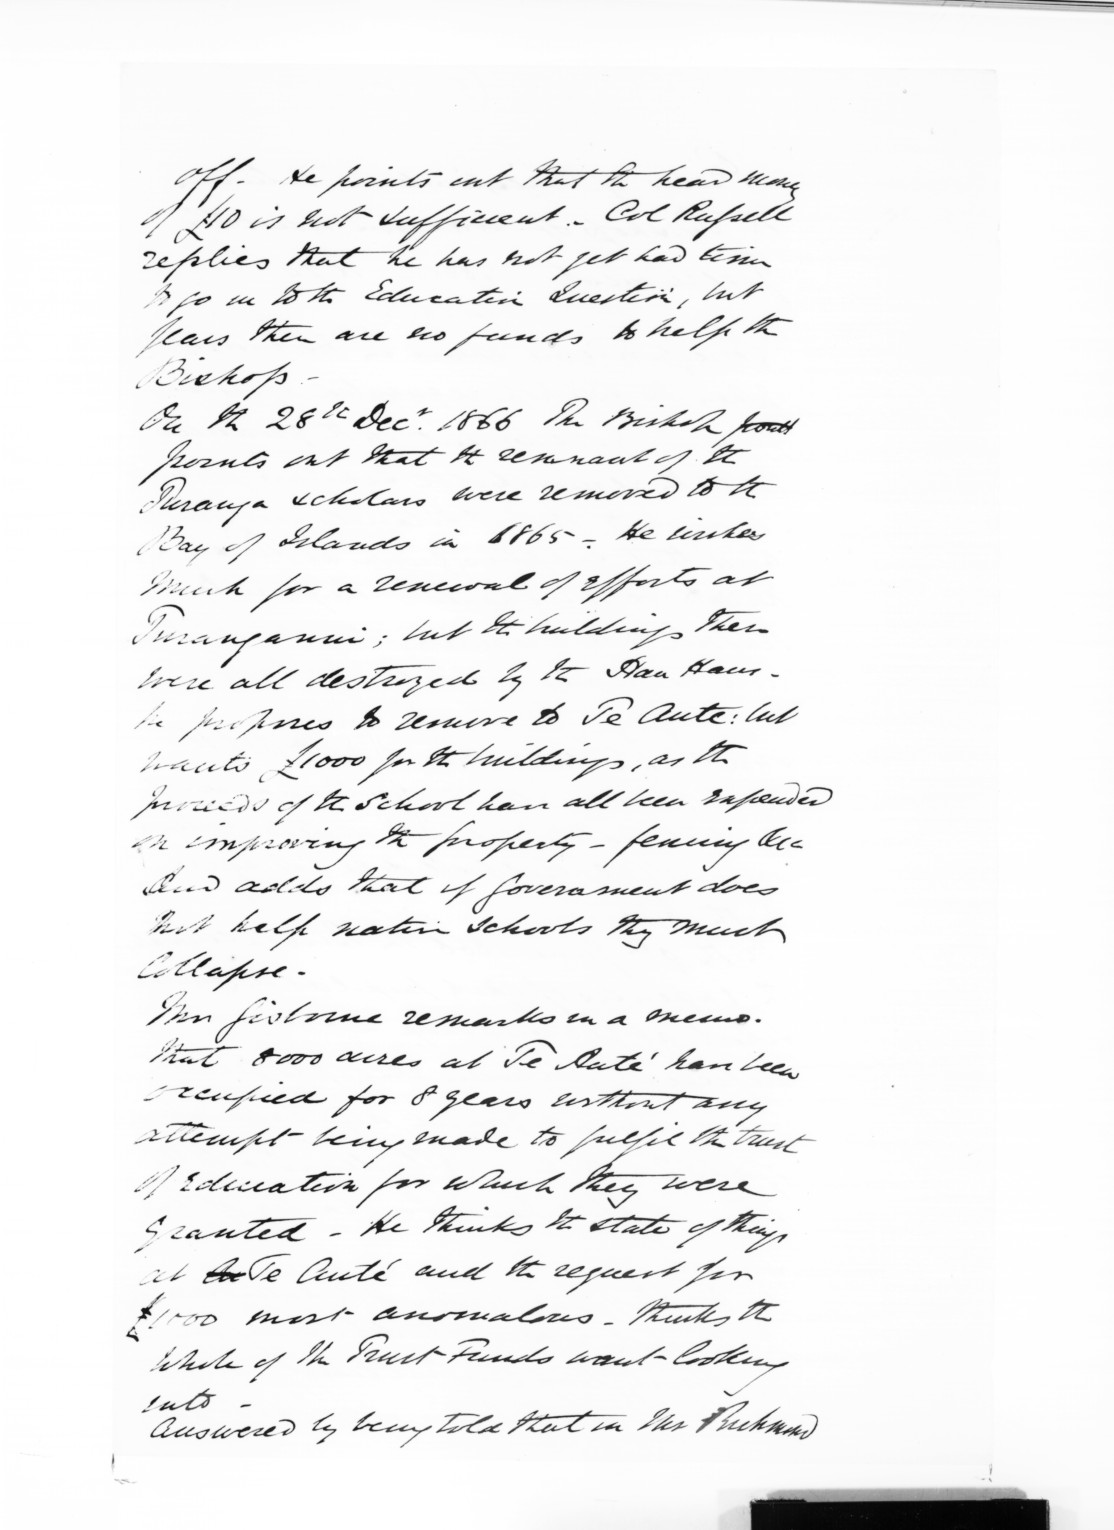 off. He points out that the head money
of £10 is not sufficient. Col Russell
replies that he has not yet had time
to go in to the Education Question, but
fears there are no funds to help the
Bishop -
On the 28th Decr. 1866 The Bishop
points out that the remnant of the
Turanga scholars were removed to the
Bay of Islands in 1865 - He wishes
much for a renewal of efforts at
Turanganui; but the buildings there
were all destroyed by the Hau Haus.
he proposes to remove to Te Aute: but
wants £1000 for the buildings, as the
proceeds of the School have all been expended
on improving the property - fencing &c
And adds that if Government does
not help native schools they must
Collapse.
Mr Gisborne remarks in a memo.
that 8000 acres at Te Auté have been
occupied for 8 years without any
attempt being made to fulfil the trust
of education for which they were
granted - He thinks the state of things
at Te Auté and the request for
£1000 most anomalous - thinks the
whole of the Trust Funds want looking
into -
Answered by being told that in Mr Richmond